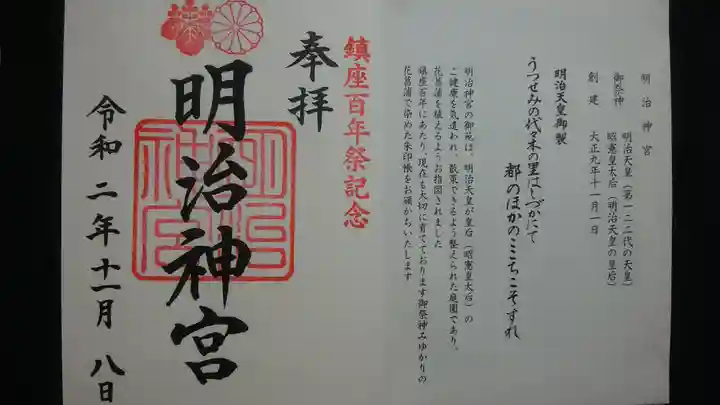 明治神宮
御祭神 明治天皇(第一二二代の天皇)
昭憲皇太后(明治天皇の皇后)
創建 大正九年十一月一日
明治天皇御製
うつせみの代々木の里はしづかにて
都のほかのここちこそすれ
明治神宮の御苑は、明治天皇が皇后(昭憲皇太后)の
ご健康を気遣われ、散策できるよう整えられた庭園であり、
花菖蒲を植えるようお指図されました
鎮座百年にあたり、現在も大切に育てております御祭神みゆかりの
花菖蒲で染めた朱印帳をお頒かちいたします
鎮座百年祭記念
奉拝
明治神宮
令和二年十一月八日